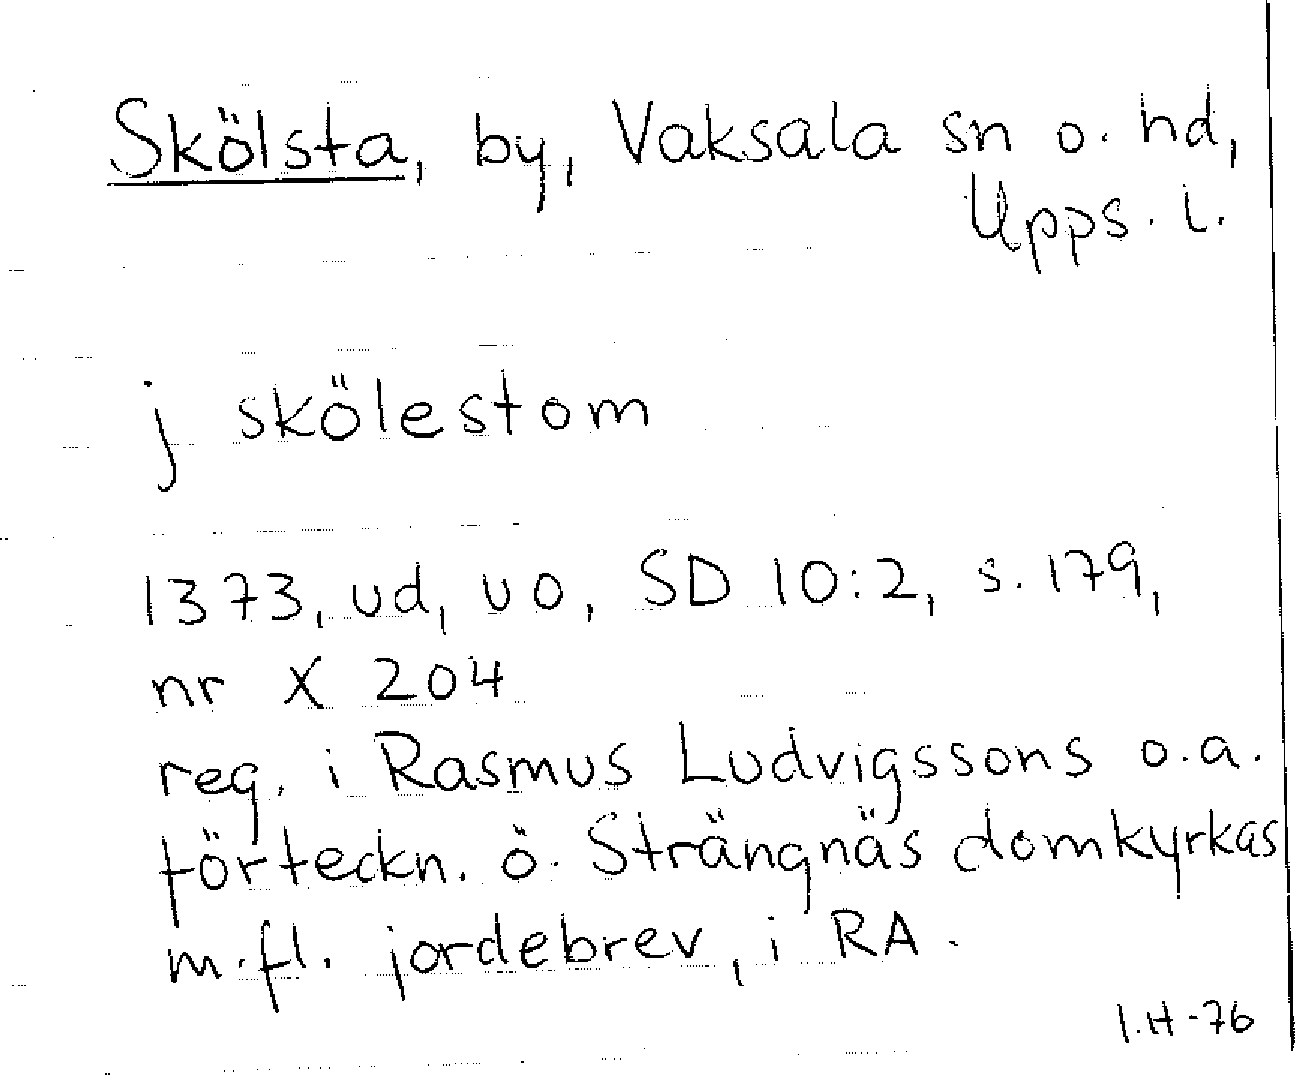 Skölsta, by, Vaksala sn o. hd,
Upps. l.
j skölestom
1373, ud, uo, SD 10:2, s. 179,
nr X 204
reg. i Rasmus Ludvigssons o.a.
förteckn. ö. Strängnäs domkyrkas
m.fl. jordebrev, i RA.
I.H-76